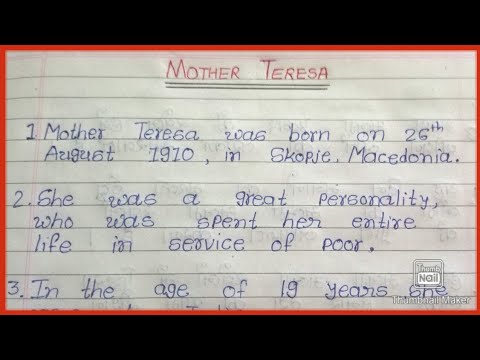 MOTHER TERESA
1. Mother Teresa was born on 26th
August 1910, in Skopje, Macedonia.
2. She was a great personality,
who was spent her entire
life in service of poor.
3. In the age of 19 years she
Thumb
Nail
Thumbnail Maker